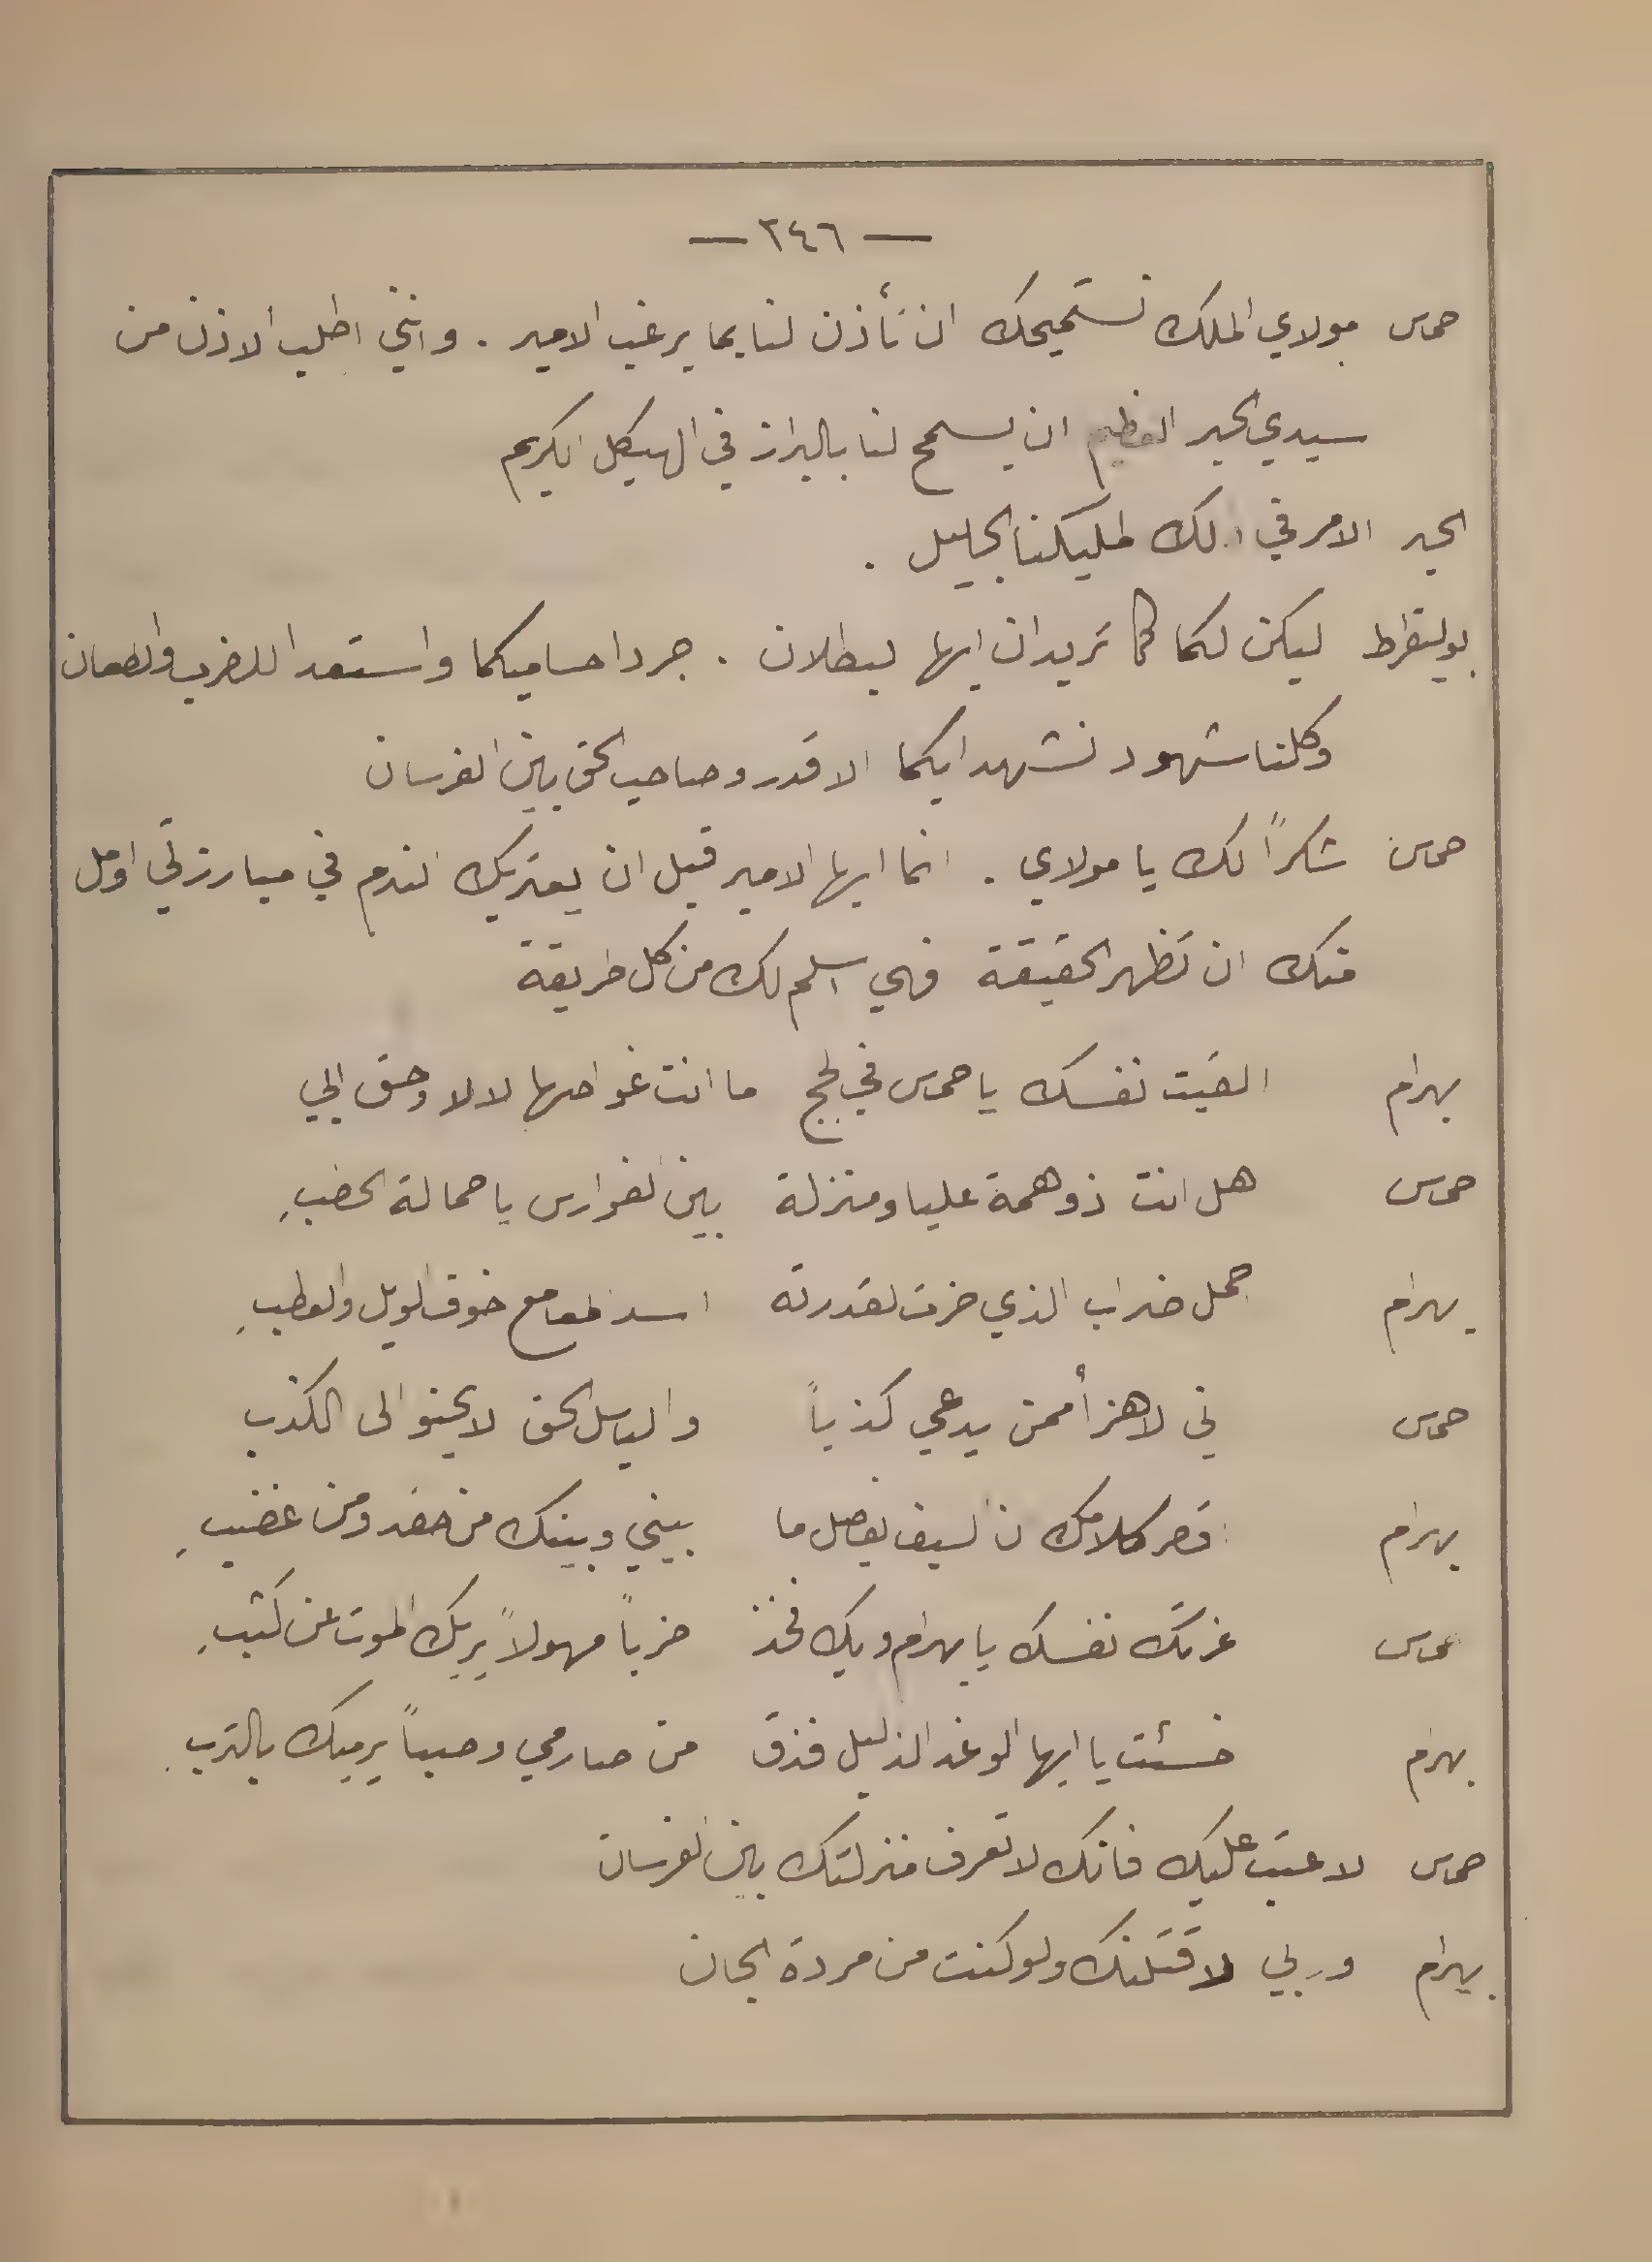 — ٢٤٦ —
حماس مولاي الملك نستميحك ان تأذن لنا بما يرغب الامير . وانني اطلب الاذن من
سيدي الحبر العظيم ان يسمح لنا بالبراز في الهيكل الكريم
الحبر الامر في ذلك لمليكنا الجليل .
بوليقراط ليكن لكما كما تريدان ايها لبطلان . جردا حساميكما واستعدا للضرب والطعان
وكلنا شهود نشهد ايكما الاقدر وصاحب الحق بين الفرسان
حماس شكراً لك يا مولاي . انما ايها الامير قبل ان يعتريك الندم في مبارزتي اومل
منك ان تظهر الحقيقة فهي اسلم لك من كل طريقة
بهرام القيت نفسك يا حماس في لجج ما انت غواصها لا لا وحق ابي
حماس هل انت ذو همة عليا ومنزلة بين الفوارس يا حمالة الحطبِ
بهرام جمل ضراب الذي خرت لقدرته اسد المعامع خوف الويل والعطبِ
حماس ني لاهزأ ممن يدعي كذباً والباسل الحق لا يحنو الى الكذب
بهرام قصر كلامك ن السيف يفصل ما بيني وبينك من حقد ومن غضبِ
حماس غرتك نفسك يا بهرام ويك فخذ ضرباً مهولاً يريك الموت عن كثبِ
بهرام خسئت يا ايها الوغد الذليل فذق من صارمي وصباً يرميك بالتربِ
حماس لا عتب عليك فانك لا تعرف منزلتك بين الفرسان
بهرام وربي لاقتلنك ولو كنت من مردة الجان